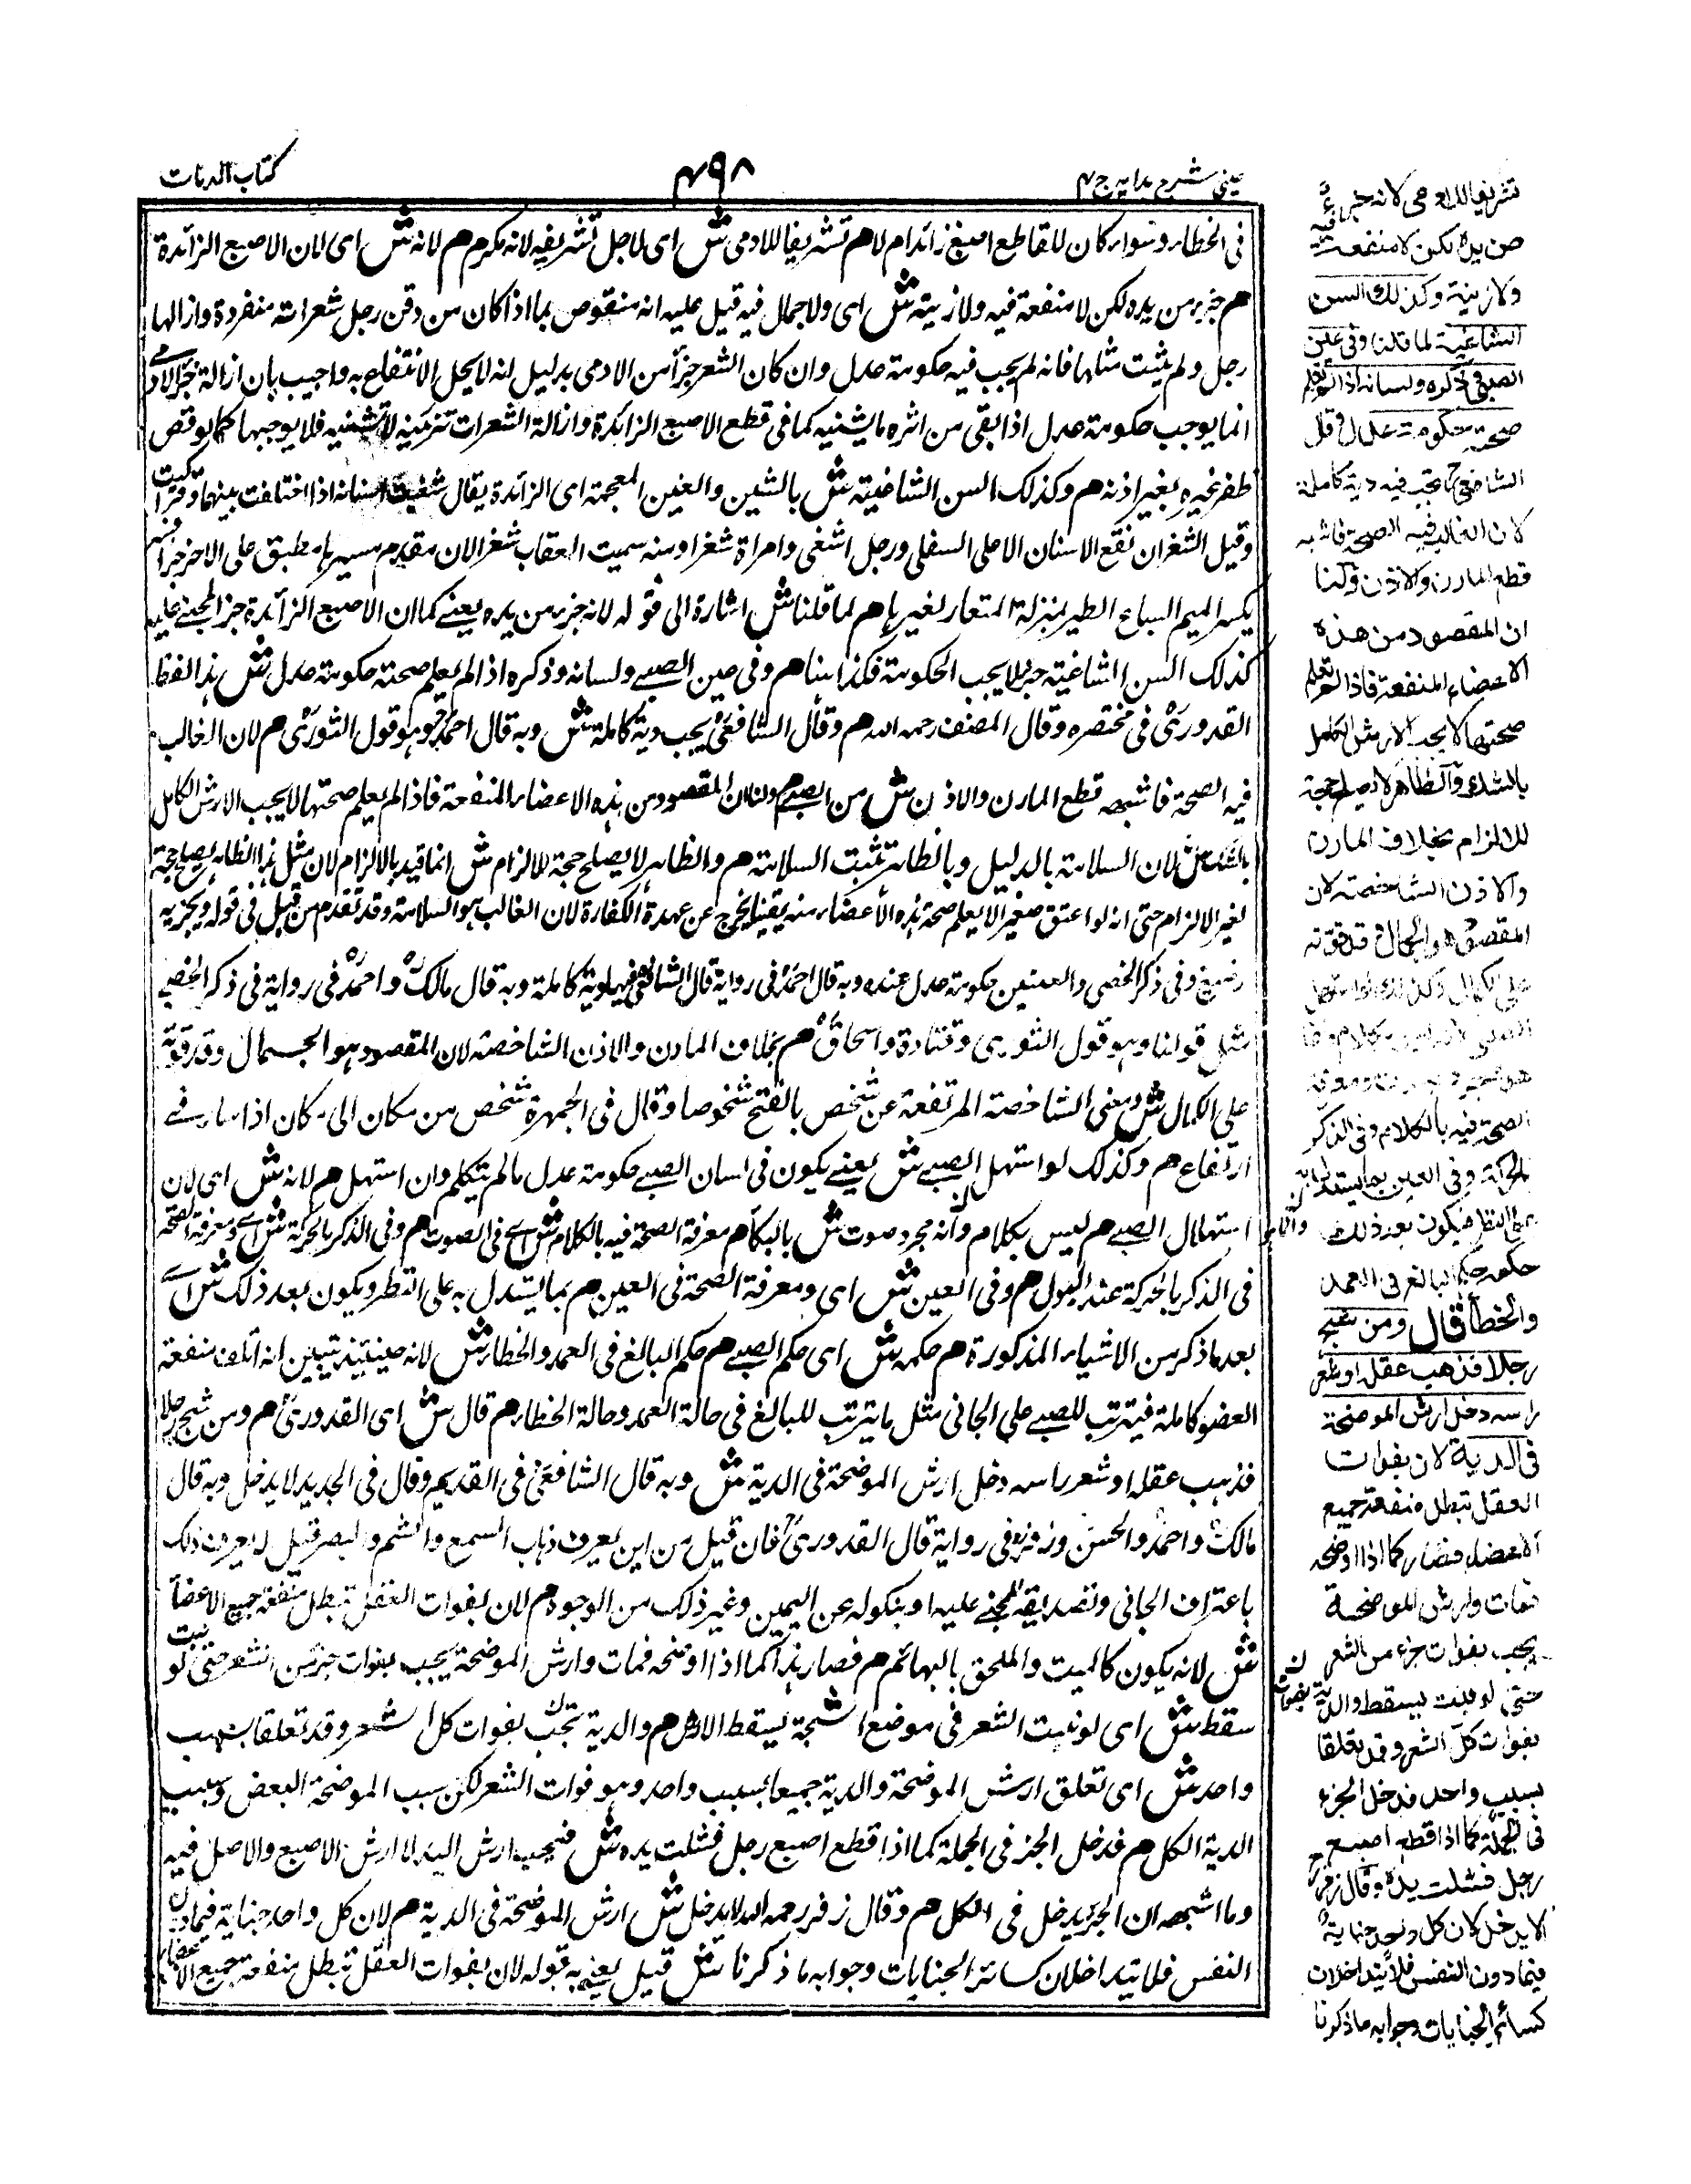 عینی شرح ہدایہ ج ۴
۴۹۸
کتاب الدیات
فی الخطاء وسواء کان للقاطع اصبع زائد ام لا هم تشریفا للادمی ش ای لاجل تشریفه لانه مکرم هم لانه ش ای لان الاصبع الزائدة
هم جزء من یده لکن لا منفعة فیه ولا زینة ش ای ولا جمال فیه قیل علیه انه منقوص بما اذا کان من ذقن رجل شعرات منفردة وازالها
رجل ولم یثبت مثلها فانه لم یجب فیه حکومة عدل وان کان الشعر جزأ من الادمی بدلیل انه لا یحل الانتفاع به واجیب بان ازالة جزء الادمی
انما یوجب حکومة عدل اذا بقی من اثره ما یشینه کما فی قطع الاصبع الزائدة وازالة الشعرات تزینه لا تشینه فلا یوجبها کما لو قص
ظفر غیره بغیر اذنه هم وکذلک السن الشاغیة ش بالشین والغین المعجمة ای الزائدة یقال شغیت اسنانه اذا اختلفت بینها
وقیل الشغر ان تقع الاسنان الاعلی السفلی ورجل اشغی وامراة شغواء ومنه سمیت العقاب شغواء لان مقدم منسرها مطبق علی الاخر
بکسر المیم السباع الطیر بمنزلة المنقار لغیرها هم لما قلنا ش اشارة الی قوله لانه جزء من یده یعنی کما ان الاصبع الزائدة جزء المجنی علیه
کذلک السن الشاغیة جزء یجب الحکومة فکذا هنا هم وفی عین الصبی ولسانه وذکره اذا لم یعلم صحته حکومة عدل ش هذا لفظ
القدوری فی مختصره وقال المصنف رحمه الله هم وقال الشافعی یجب دیة کاملة ش وبه قال احمد وهو قول الثوری هم لان الغالب
فیه الصحة فاشبه قطع المارن والاذن ش من الصبی هم ولنا ان المقصود من هذه الاعضاء المنفعة فاذا لم یعلم صحتها لا یجب الارش الکامل
بالشک ش لان السلامة بالدلیل وبالظاهر تثبت السلامة هم والظاهر لا یصلح حجة للالزام ش انما قید بالالزام لان مثل هذا الظاهر یصلح حجة
لغیر الالزام حتی انه لو اعتق صغیرا لا یعلم صحة هذه الأعضاء منه یقینا یخرج عن عهدة الکفارة لان الغالب هو السلامة وقد تقدم من قبل فی قوله ویجزیه
رضیع وفی ذکر الخصی والعنین حکومة عدل عنده وبه قال احمد فی روایة قال الشافعی فیه دیة کاملة وبه قال مالک واحمد فی روایة فی ذکر الخصی
مثل قولنا وهو قول الثوری وقتادة واسحاق هم بخلاف المارن والاذن الشاخصة لان المقصود هو الجمال وقد فوته
علی الکمال ش ومعنی الشاخصة المرتفعة عن شخص بالفتح شخوصا وقال فی الجمهرة شخص من مکان الی مکان اذا سار فی
ارتفاع هم وکذلک لو استهل الصبی ش یعنی یکون فی لسان الصبی حکومة عدل ما لم یتکلم وان استهل هم لانه ش ای لان
استهلال الصبی هم لیس بکلام وانه مجرد صوت ش بالبکاء هم معرفة الصحة فیه بالکلام ش ای فی الصوت هم وفی الذکر بالحرکة ش ای ومعرفة الصحة
فی الذکر بالحرکة عند البول هم وفی العین ش ای ومعرفة الصحة فی العین هم بما یستدل به علی النظر ویکون بعد ذلک ش ای
بعد ما ذکر من الاشیاء المذکورة هم حکمه ش ای حکم الصبی هم حکم البالغ فی العمد والخطاء ش لانه حینئذ یتبین انه اتلف منفعة
العضو کاملة فیترتب للصبی علی الجانی مثل ما یترتب للبالغ فی حالة العمد وحالة الخطاء هم قال ش ای القدوری هم ومن شج رجلا
فذهب عقله او شعر راسه دخل ارش الموضحة فی الدیة ش وبه قال الشافعی فی القدیم وقال فی الجدید لا یدخل وبه قال
مالک واحمد والحسن وزفر فی روایة قال القدوری فان قیل من این یعرف ذهاب السمع والشم والبصر قیل له یعرف ذلک
باعتراف الجانی وتصدیقه المجنی علیه او بنکوله عن الیمین وغیر ذلک من الوجوه هم لان بفوات العقل تبطل منفعة جمیع الاعضاء
ش لانه یکون کالمیت والملحق بالبهائم هم فصار هذا کما اذا اوضحه فمات وارش الموضحة یجب بفوات جزء من الشعر حتی لو نبت
سقط ش ای لو نبت الشعر فی موضع الشجة یسقط الارش هم والدیة تجب بفوات کل الشعر وقد تعلقا بسبب
واحد ش ای تعلق ارش الموضحة والدیة جمیعا بسبب واحد وهو فوات الشعر لکن سبب الموضحة البعض وسبب
الدیة الکل هم فدخل الجزء فی الجملة کما اذا قطع اصبع رجل فشلت یده ش فیجب ارش الید لا ارش الاصبع والاصل فیه
وما اشبهه ان الجزء یدخل فی الکل هم وقال زفر رحمه الله لا یدخل ش ارش الموضحة فی الدیة هم لان کل واحد جنایة فیما دون
النفس فلا یتداخلان کسائر الجنایات وجوابه ما ذکرنا ش قیل یعنی به قوله لان بفوات العقل تبطل منفعة جمیع الاعضاء
تشریفا للادمی لانه جزء
من یده لکن لا منفعة فیه
ولا زینة وکذلک السن
الشاغیة لما قلنا وفی عین
الصبی وذکره ولسانه اذا لم یعلم
صحته حکومة عدل وقال
الشافعی تجب فیه دیة کاملة
لان الغالب فیه الصحة فاشبه
قطع المارن والاذن ولنا
ان المقصود من هذه
الاعضاء المنفعة فاذا لم یعلم
صحتها لا یجب الارش الکامل
بالشک والظاهر لا یصلح حجة
للالزام بخلاف المارن
والاذن الشاخصة لان
المقصود هو الجمال وقد فوته
علی الکمال وکذلک لو استهل
الصبی لانه لیس بکلام وانما
هو مجرد صوت ومعرفة
الصحة فیه بالکلام وفی الذکر
بالحرکة وفی العین بما یستدل به
علی النظر فیکون بعد ذلک
حکمه حکم البالغ فی العمد
والخطأ قال ومن شج
رجلا فذهب عقله او شعر
راسه دخل ارش الموضحة
فی الدیة لان بفوات
العقل تبطل منفعة جمیع
الاعضاء فصار کما اذا اوضحه
فمات وارش الموضحة
یجب بفوات جزء من الشعر
حتی لو نبت یسقط والدیة
بفوات کل الشعر وقد تعلقا
بسبب واحد فدخل الجزء
فی الجملة کما اذا قطع اصبع
رجل فشلت یده وقال زفر
لا یدخل لان کل واحد جنایة
فیما دون النفس فلا یتداخلان
کسائر الجنایات وجوابه ما ذکرنا